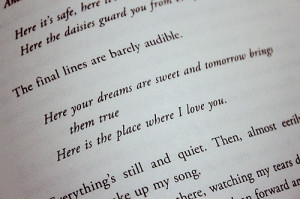 Here it's safe, here it
Here the daisies guard you from
The final lines are barely audible.
Here your dreams are sweet and tomorrow brings
them true
Here is the place where I love you.
Everything's still and quiet. Then, almost
up my song.
there, watching my tears
forward an